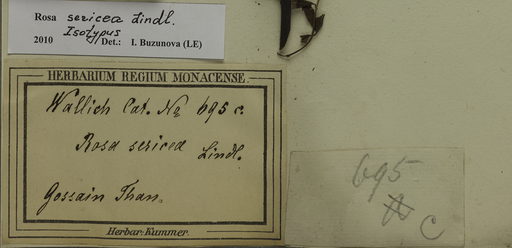 Rosa sericea Lindl.
Isotypus
2010 Det.: I. Buzunova (LE)
HERBARIUM REGIUM MONACENSE.
Wallich Cat. No 695 c.
Rosa sericea Lindl.
Gossain Than.
Herbar: Kummer.
695
C